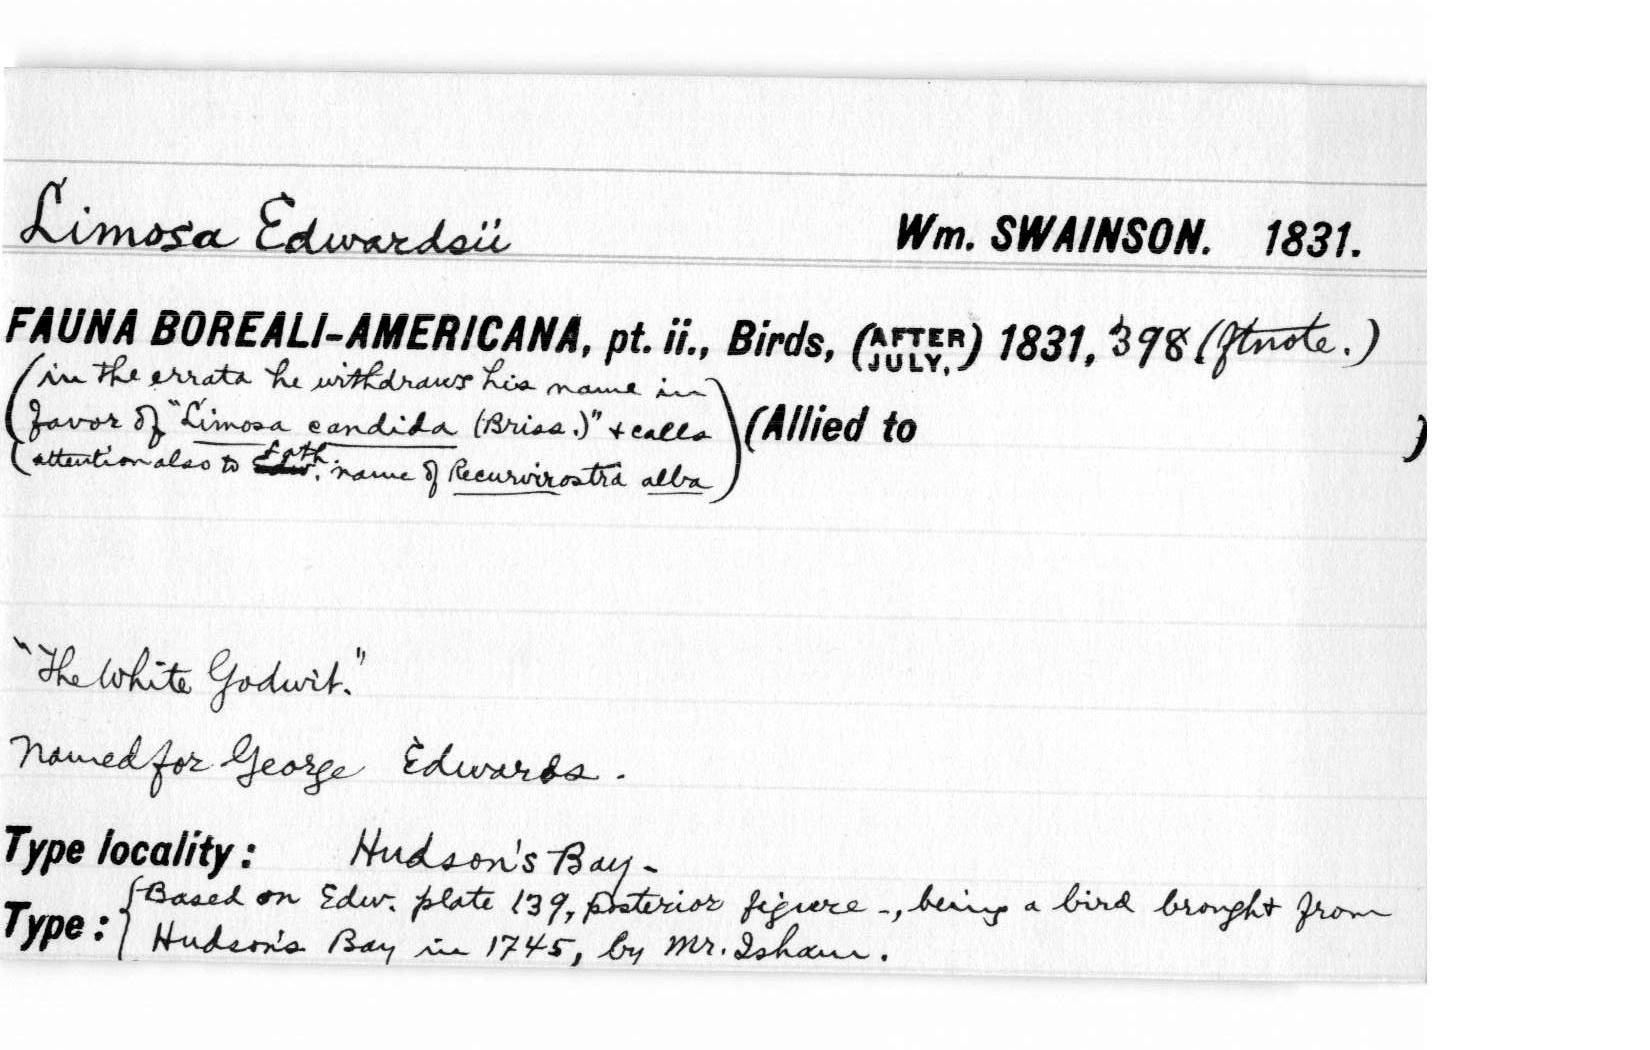 Limosa Edwardsii Wm. SWAINSON. 1831.
FAUNA BOREALI-AMERICANA, pt. ii., Birds, (AFTER JULY,) 1831, 398 (ftnote.)
(in the errata he withdraws his name in
favor of "Limosa candida (Briss.)" + calls
attention also to Lath. name of Recurvirostra alba)
(Allied to )
"The White Godwit."
Named for George Edwards.
Type locality: Hudson's Bay-
Type: {Based on Edw. plate 139, posterior figure -, being a bird brought from
Hudson's Bay in 1745, by Mr. Isham.